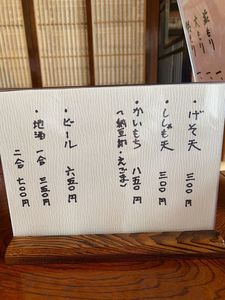 ・げそ天　三〇〇円
・ししゃも天　三〇〇円
・かいもち　八五〇円
（納豆・えごま）
・ビール　六五〇円
・地酒　一合　三五〇円
二合　七〇〇円